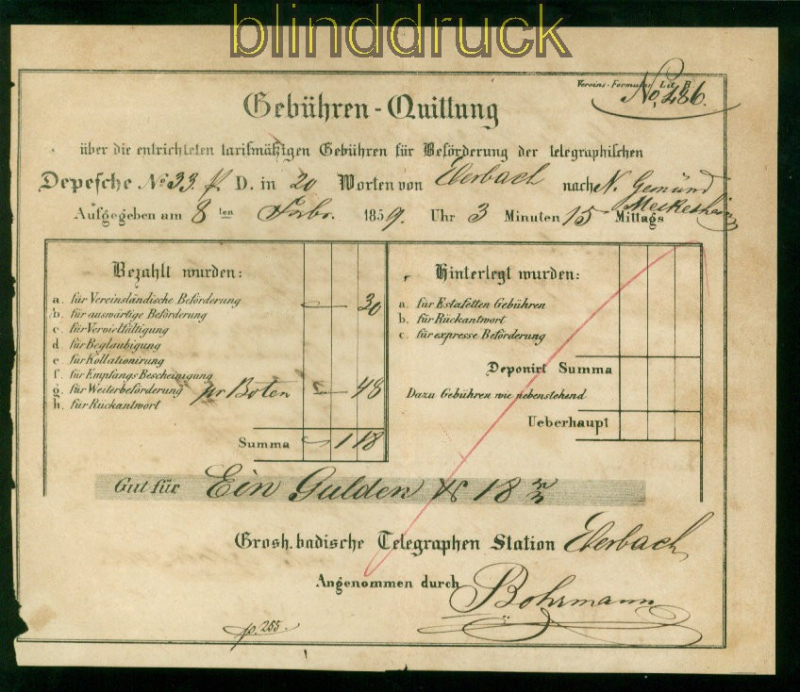 blinddruck
Vereins-Formular Lit. B.
No. 486.
Gebühren-Quittung
über die entrichteten tarifmäßigen Gebühren für Beförderung der telegraphischen
Depesche No 33 D. in 20 Worten von Eberbach nach N. Gemünd
Meckesheim
Aufgegeben am 8 ten Febr. 1859. Uhr 3 Minuten 15 Mittags
Bezahlt wurden:
a. für Vereinsländische Beförderung — 30
b. für auswärtige Beförderung
c. für Vervielfältigung
d. für Beglaubigung
e. für Kollationirung
f. für Empfangs Bescheinigung
g. für Weiterbeförderung pr Boten — 48
h. für Rückantwort
Summa 1 18
Hinterlegt wurden:
a. für Estafetten Gebühren
b. für Rückantwort
c. für expresse Beförderung
Deponirt Summa
Dazu Gebühren wie nebenstehend
Ueberhaupt
Gut für Ein Gulden 18
Grosh. badische Telegraphen Station Eberbach
Angenommen durch
Bohrmann
p. 255.